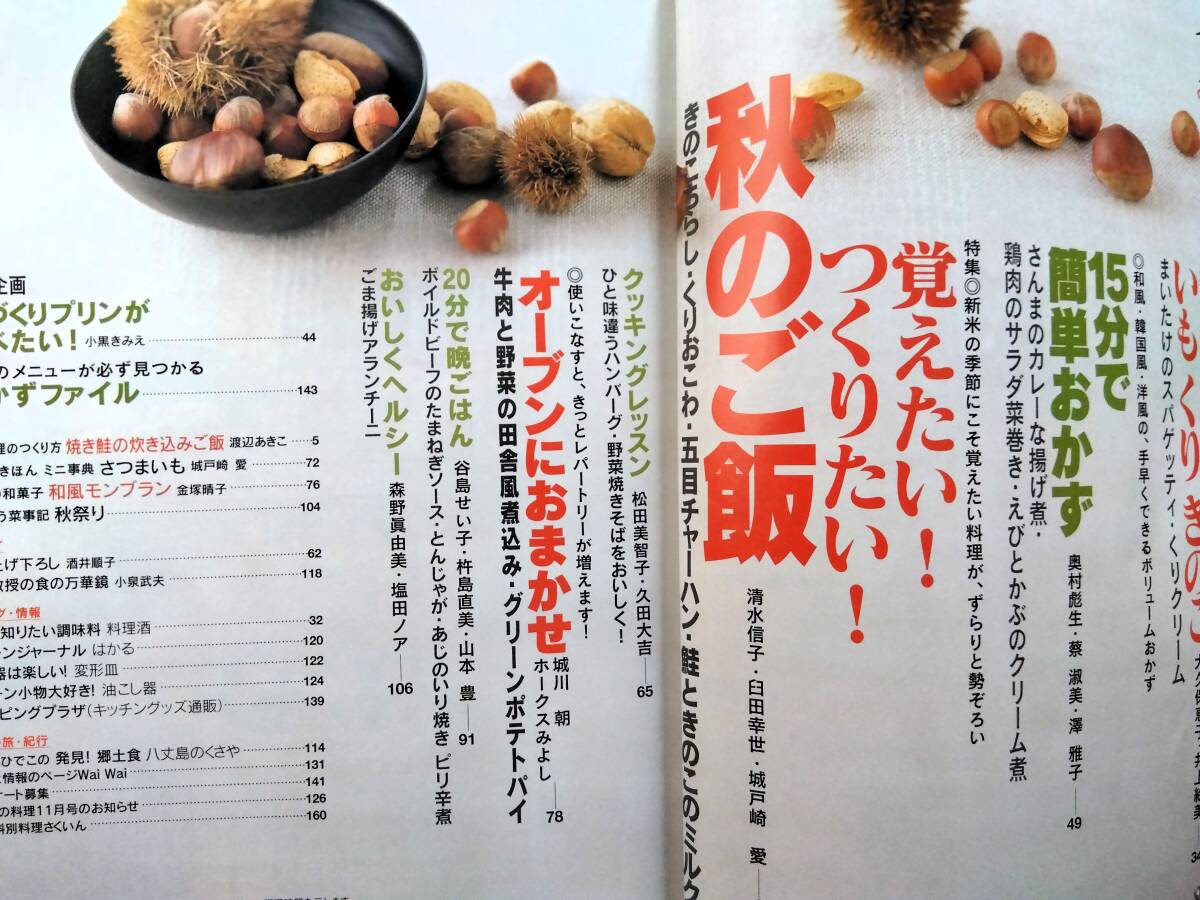 いもくりきのこ
まいたけのスパゲッティ・くりクリーム
34
◎和風・韓国風・洋風の、手早くできるボリュームおかず
15分で
簡単おかず
奥村彪生・蔡 淑美・澤 雅子
49
さんまのカレーな揚げ煮・
鶏肉のサラダ菜巻き・えびとかぶのクリーム煮
特集◎新米の季節にこそ覚えたい料理が、ずらりと勢ぞろい
覚えたい!
つくりたい!
秋のご飯
清水信子・臼田幸世・城戸崎 愛
きのこちらし・くりおこわ・五目チャーハン・鮭ときのこのミルク
クッキングレッスン
松田美智子・久田大吉
65
ひと味違うハンバーグ・野菜焼きそばをおいしく!
◎使いこなすと、きっとレパートリーが増えます!
オーブンにおまかせ
城川 朝
ホークスみよし
78
牛肉と野菜の田舎風煮込み・グリーンポテトパイ
20分で晩ごはん
谷島せい子・杵島直美・山本 豊
91
ボイルドビーフのたまねぎソース・とんじゃが・あじのいり焼き ピリ辛煮
おいしくヘルシー
森野眞由美・塩田ノア
106
ごま揚げアランチーニ
企画
づくりプリンが
べたい! 小黒きみえ 44
のメニューが必ず見つかる
かずファイル 143
理のつくり方 焼き鮭の炊き込みご飯 渡辺あきこ 5
きほん ミニ事典 さつまいも 城戸崎 愛 72
の和菓子 和風モンブラン 金塚晴子 76
う菜事記 秋祭り 104
上げ下ろし 酒井順子 62
教授の食の万華鏡 小泉武夫 118
グ・情報
知りたい調味料 料理酒 32
ーンジャーナル はかる 120
器は楽しい! 変形皿 122
ーン小物大好き! 油こし器 124
ピングプラザ(キッチングッズ通販) 139
旅・紀行
ひでこの 発見! 郷土食 八丈島のくさや 114
情報のページWai Wai 131
ート募集 141
の料理11月号のお知らせ 126
料別料理さくいん 160